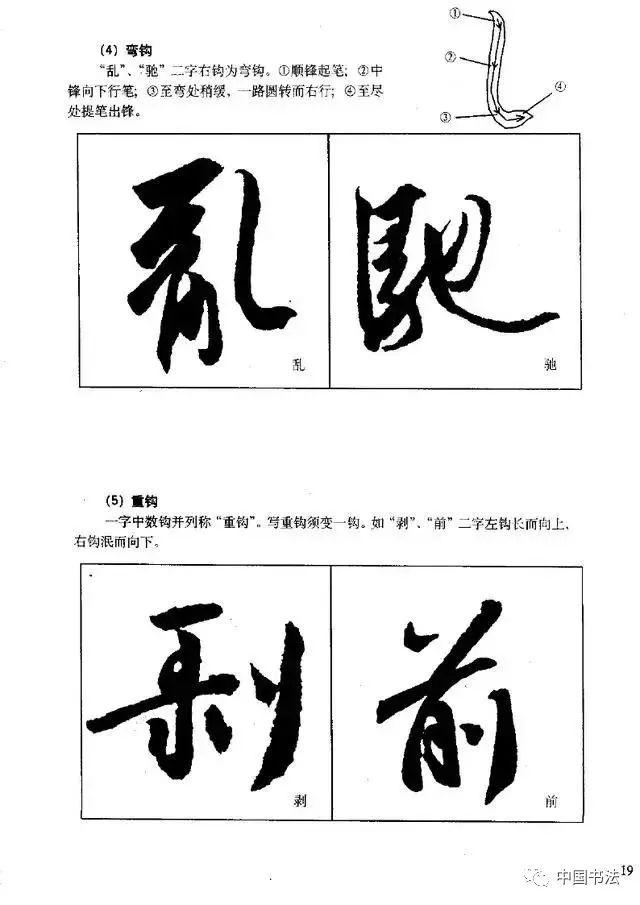 (4) 弯钩
“乱”、“驰”二字右钩为弯钩。①顺锋起笔；②中
锋向下行笔；③至弯处稍缓，一路圆转而右行；④至尽
处提笔出锋。
①
②
③
④
亂
馳
乱
驰
(5) 重钩
一字中数钩并列称“重钩”。写重钩须变一钩。如“剥”、“前”二字左钩长而向上，
右钩泯而向下。
剥
前
剥
前
中国书法
19